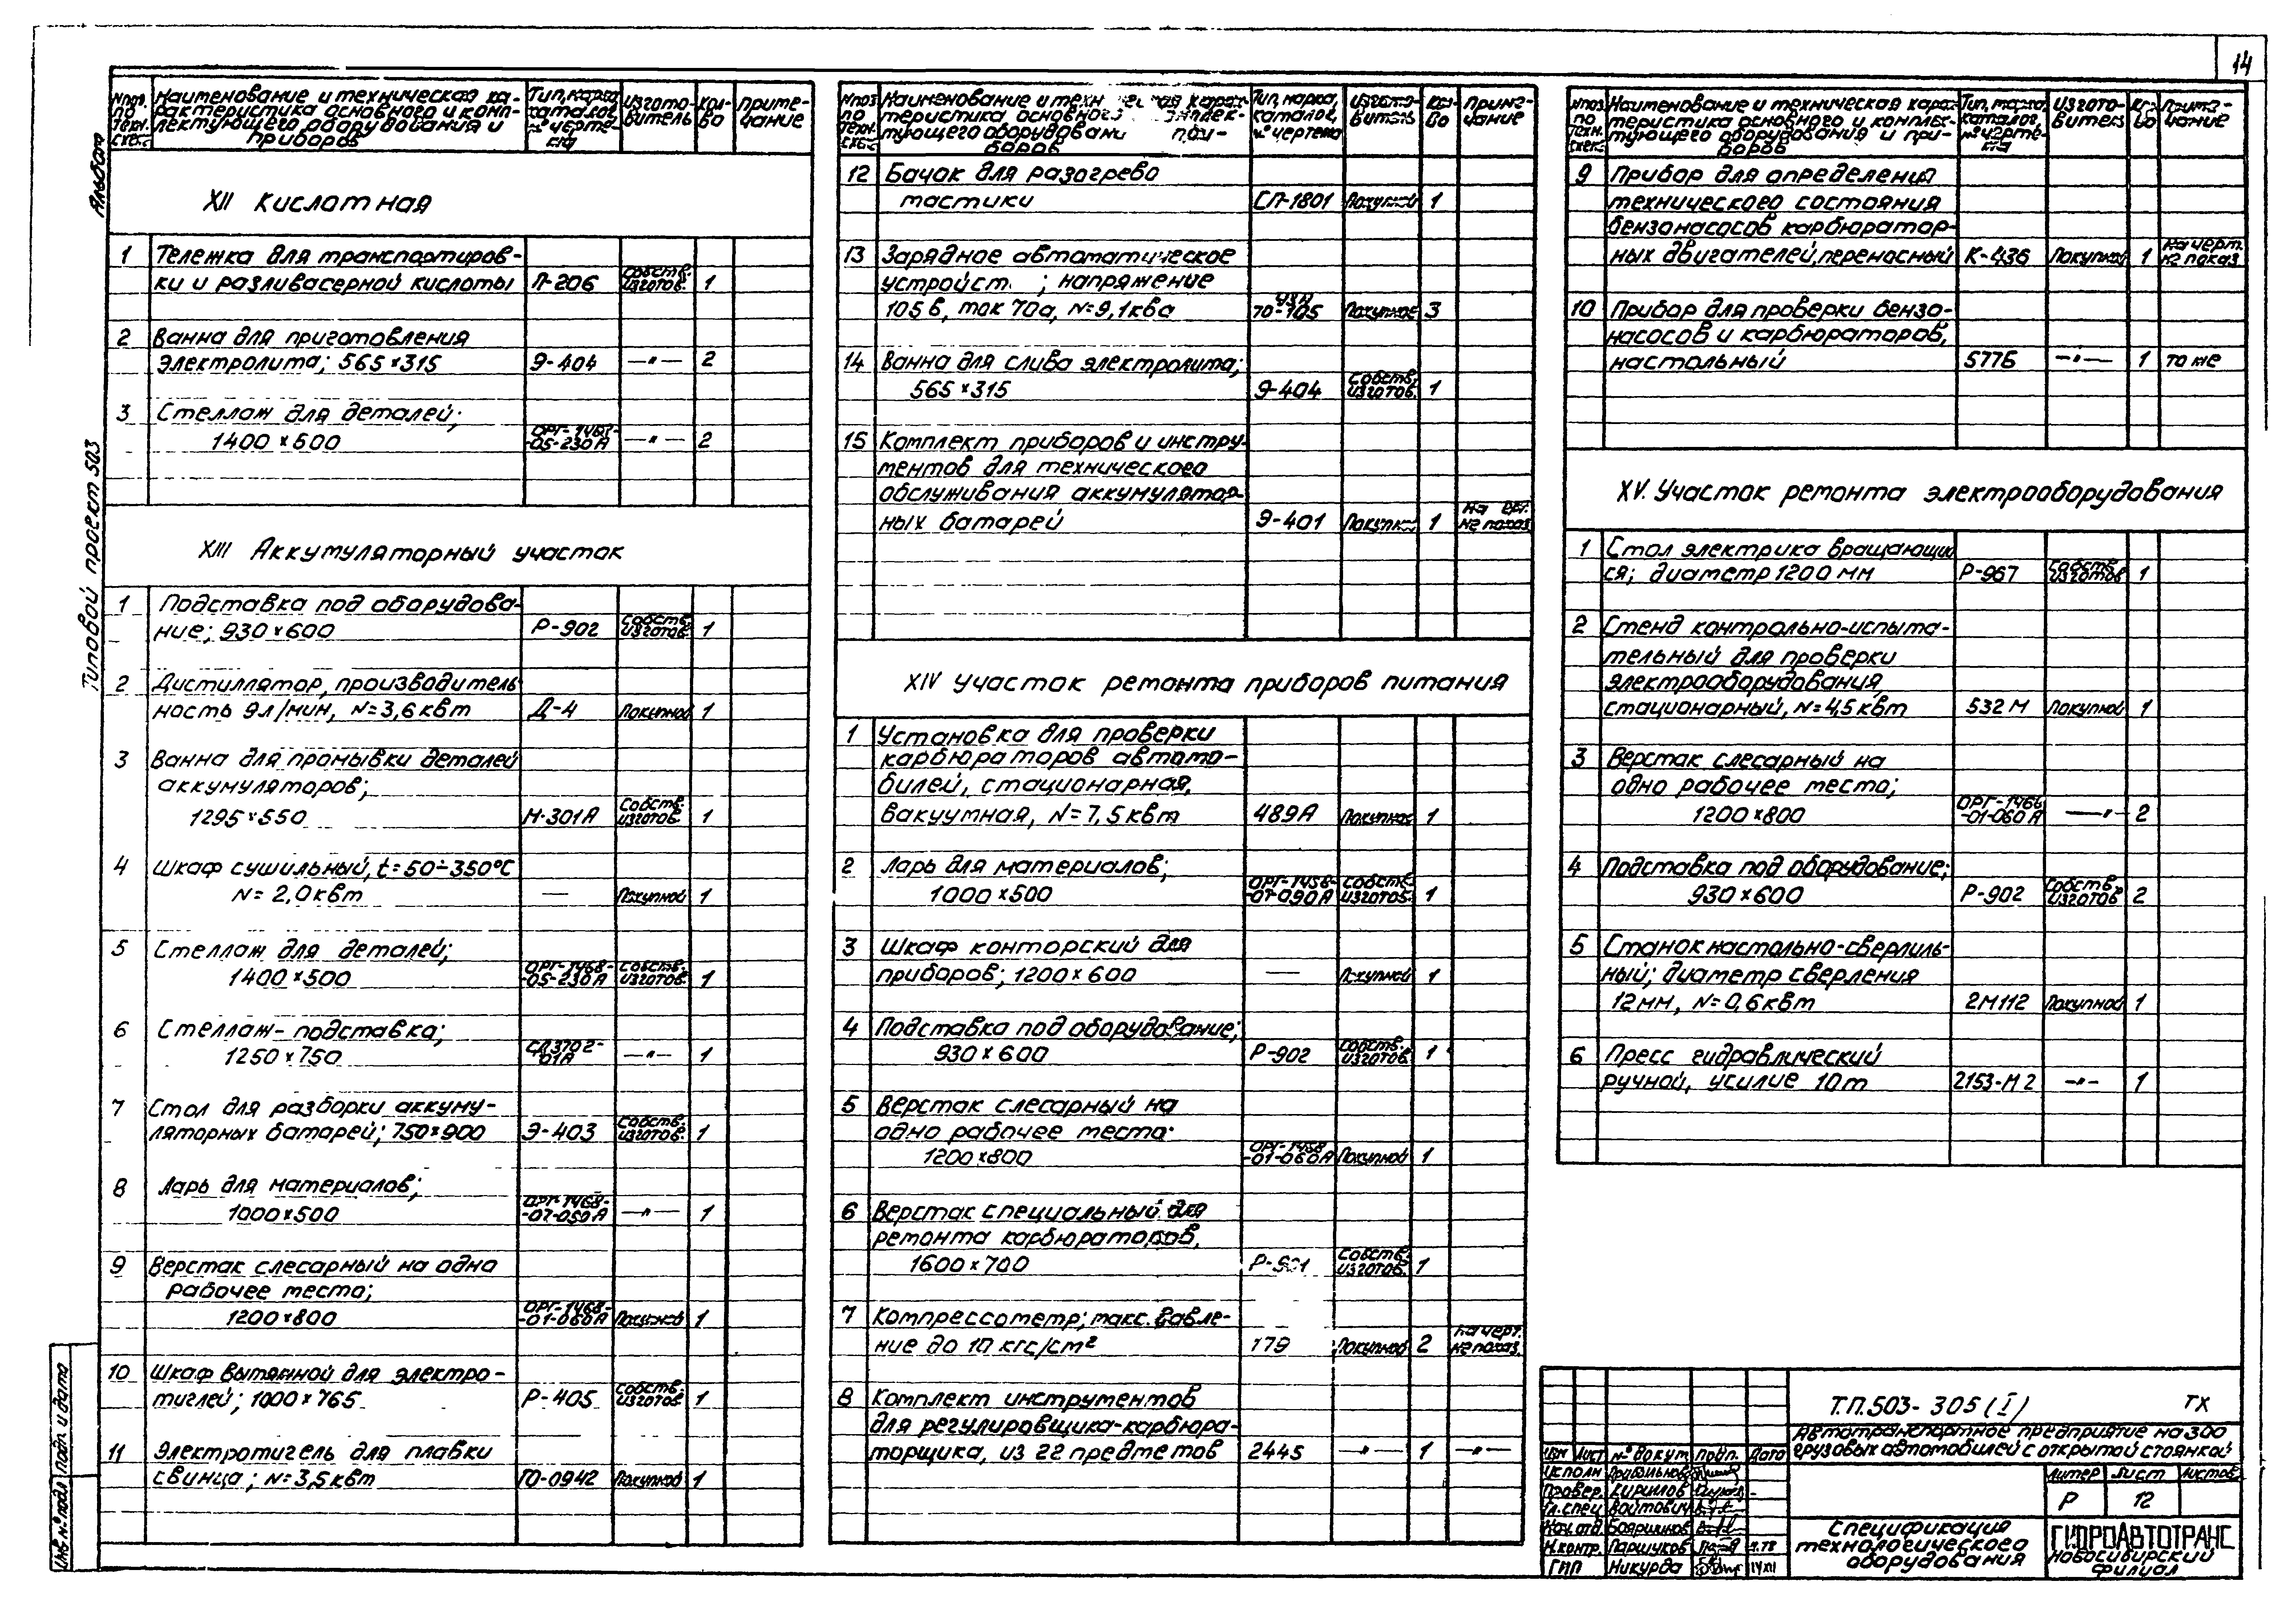 14
Альбом
Типовой проект 503
№ поз. по техн. схеме
Наименование и техническая ха-
рактеристика основного и комп-
лектующего оборудования и
приборов
Тип, марка, каталог, № черте-
жа
Изгото-
витель
Кол-
во
Приме-
чание
XII Кислотная
1 Тележка для транспортиров-
ки и разлива серной кислоты П-206 Собств. изготов. 1
2 Ванна для приготовления
электролита; 565×315 Э-404 —"— 2
3 Стеллаж для деталей;
1400×500 -05-230А —"— 2
XIII Аккумуляторный участок
1 Подставка под оборудова-
ние; 930×600 Р-902 Собств. изготов. 1
2 Дистиллятор, производитель-
ность 9л/мин, N=3,6квт Д-4 Покупной 1
3 Ванна для промывки деталей
аккумуляторов;
1295×550 М-301А Собств. изготов. 1
4 Шкаф сушильный, t=50÷350°С
N=2,0квт — Покупной 1
5 Стеллаж для деталей;
1400×500 ОРГ-1468-
-05-230А Собств. изготов. 1
6 Стеллаж-подставка;
1250×750 СД3702-
01А —"— 1
7 Стол для разборки аккуму-
ляторных батарей; 750×900 Э-403 Собств. изготов. 1
8 Ларь для материалов;
1000×500 ОРГ-1468-
—"— 1
9 Верстак слесарный на одно
рабочее место;
1200×800 ОРГ-1468-
-01-060А Покупной 1
10 Шкаф вытяжной для электро-
тиглей; 1000×765 Р-405 Собств. изготов. 1
11 Электротигель для плавки
свинца; N=3,5квт ГО-0942 Покупной 1
№ поз. по техн. схеме
Наименование и техн ская харак-
теристика основного комплек-
тующего оборудовани при-
боров
Тип, марка, каталог, № чертежа
Изгото-
витель
Кол-
во
Приме-
чание
12 Бачок для разогрева
мастики СП-1801 Покупной 1
13 Зарядное автоматическое
устройст ; напряжение
105 в, ток 70а, N=9,1ква УЗА
70-105 Покупное 3
14 Ванна для слива электролита;
565×315 Э-404 Собств. изготов. 1
15 Комплект приборов и инстру-
ментов для технического
обслуживания аккумулятор-
ных батарей Э-401 Покупной 1 На черт. не показ.
XIV Участок ремонта приборов питания
1 Установка для проверки
карбюраторов автомо-
билей, стационарная,
вакуумная, N=7,5квт 489А Покупная 1
2 Ларь для материалов;
1000×500 Собств. изготов. 1
3 Шкаф конторский для
приборов; 1200×600 — Покупной 1
4 Подставка под оборудование;
930×600 Р-902 Собств. изготов. 1
5 Верстак слесарный на
одно рабочее место.
1200×800 -01-060А Покупной 1
6 Верстак специальный для
ремонта карбюраторов,
1600×700 Собств. изготов. 1
7 Компрессометр; макс. давле-
ние до 10 кгс/см² 179 Покупной 2 На черт. не показ.
8 Комплект инструментов
для регулировщика-карбюра-
торщика, из 22 предметов 2445 —"— 1 —"—
№ поз. по техн. схеме
Наименование и техническая харак-
теристика основного и комплек-
тующего оборудования и при-
боров
Тип, марка, каталог, № черте-
жа
Изгото-
витель
Кол-
во
Приме-
чание
9 Прибор для определения
технического состояния
бензонасосов карбюратор-
ных двигателей, переносный К-436 Покупной 1 На черт. не показ
10 Прибор для проверки бензо-
насосов и карбюраторов,
настольный 577Б —"— 1 то же
XV. Участок ремонта электрооборудования
1 Стол электрика вращающий
ся; диаметр 1200 мм Р-967 Собств. изготов 1
2 Стенд контрольно-испыта-
тельный для проверки
электрооборудования,
стационарный, N=4,5квт 532М Покупной 1
3 Верстак слесарный на
одно рабочее место;
1200×800 -01-060А —"— 2
4 Подставка под оборудование;
930×600 Р-902 Собств. изготов 2
5 Станок настольно-сверлиль-
ный; диаметр сверления
12мм, N=0,6квт 2М112 Покупной 1
6 Пресс гидравлический
ручной, усилие 10т 2153-М2 —"— 1
Т.П.503-305(I) ТХ
Автотранспортное предприятие на 300
грузовых автомобилей с открытой стоянкой
Изм Лист № докум. Подп. Дата
Исполн
Провер. Кириллов
Гл. спец Войтович
Нач. отд. Бояршинов
Н.контр. Паршуков
ГИП Никурда
Литер Лист Листов
Р 12
Спецификация
технологического
оборудования
ГИПРОАВТОТРАНС
Новосибирский
филиал
Инв № подл Подп и дата